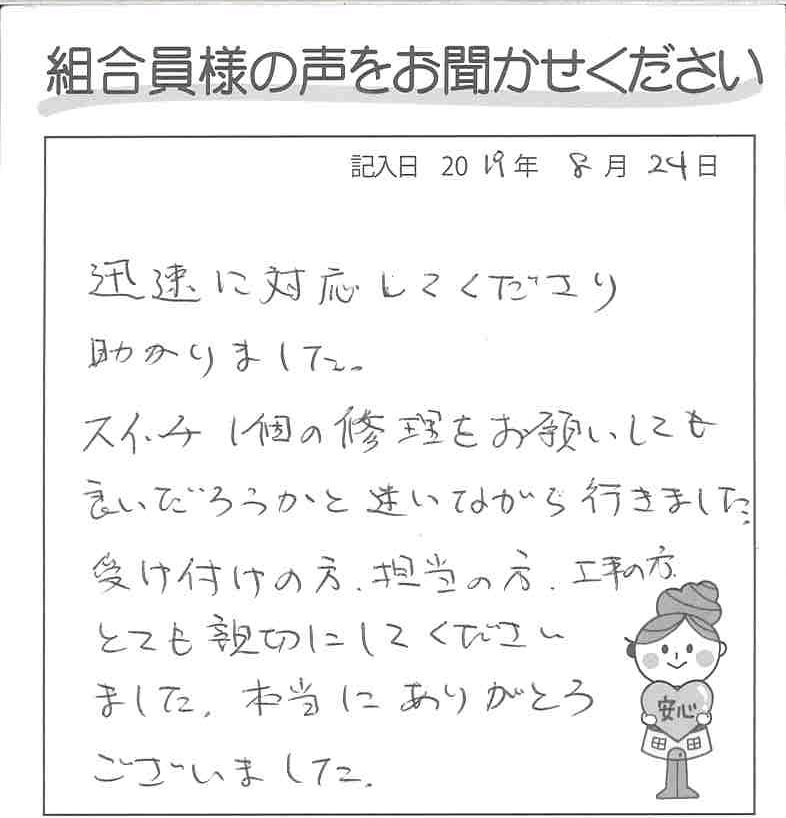 組合員様の声をお聞かせください
記入日 2019年 8月 24日
迅速に対応してくださり
助かりました。
スイッチ1個の修理をお願いしても
良いだろうかと迷いながら行きました。
受け付けの方、担当の方、工事の方、
とても親切にしてください
ました。本当にありがとう
ございました。
安心